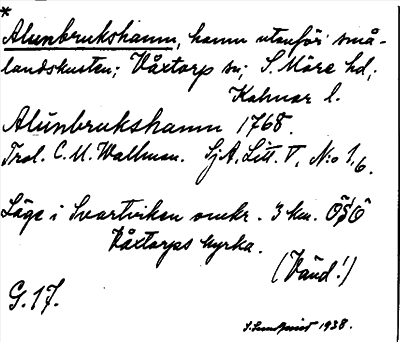 *
Alunbrukshamn, hamn utanför små-
landskusten; Växtorp sn; S. Möre hd;
Kalmar l.
Alunbrukshamn 1768.
Trol. C. M. Wallman. SjA, Litt. V, N:o 1, 6.
Låge i Svartviken omkr. 3 km. ÖSÖ
Växtorps kyrka.
(Vänd!)
G. 17.
S. Lundqvist 1938.